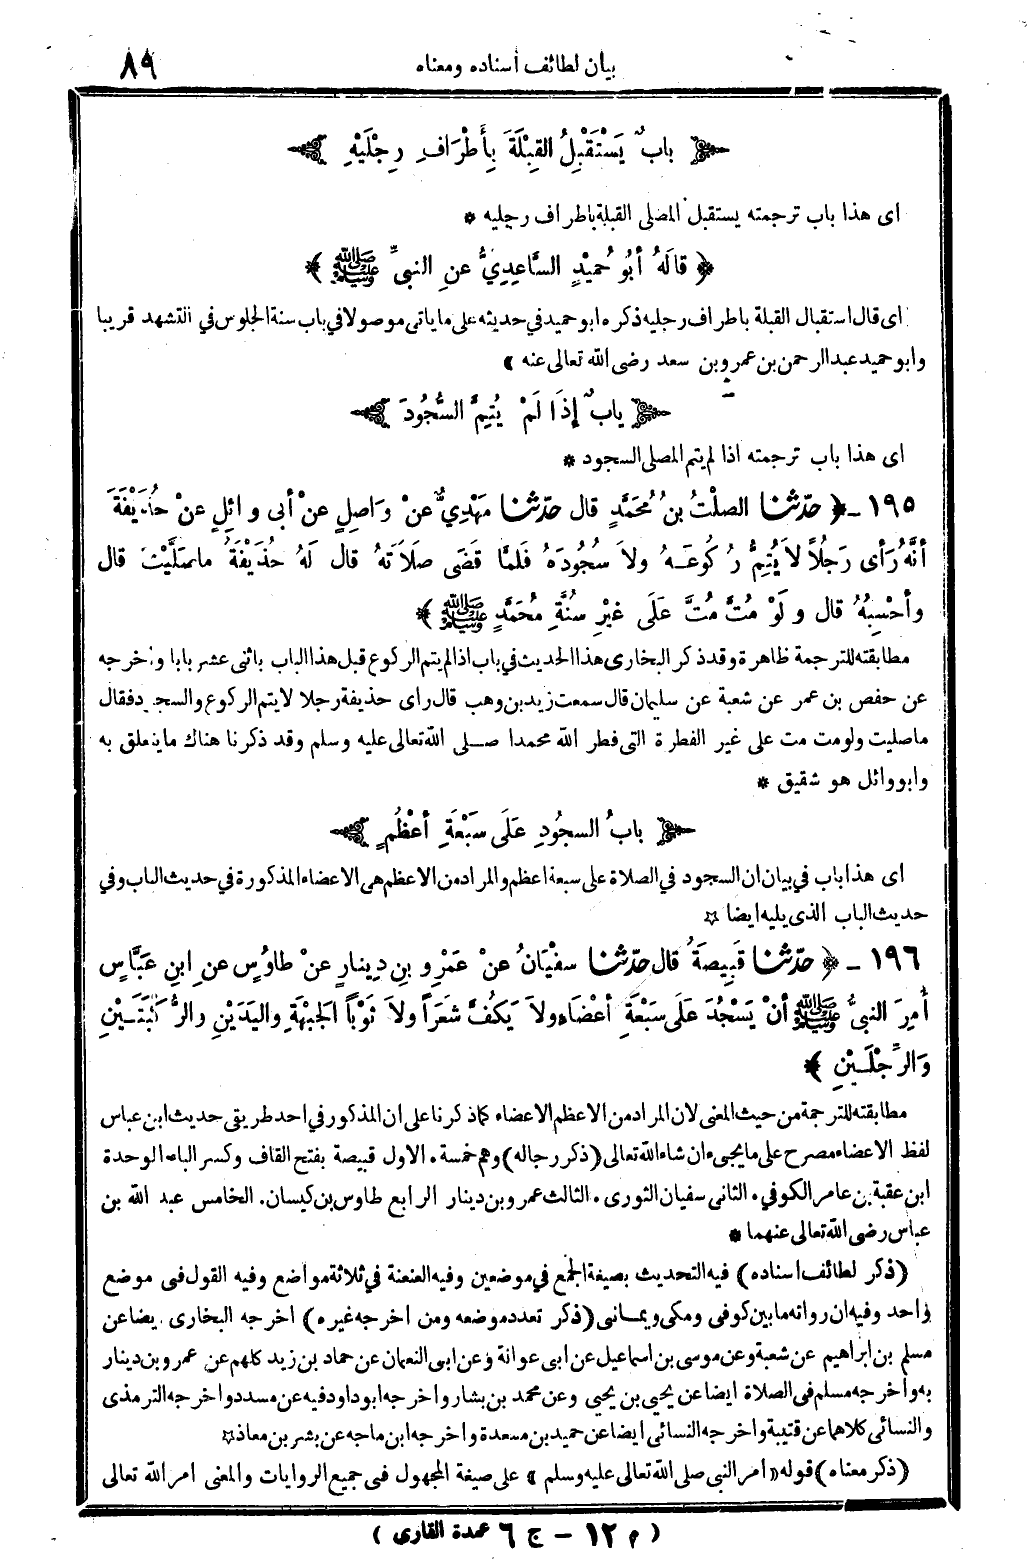 بيان لطائف أسناده ومعناه ٨٩
باب يَسْتَقْبِلُ القِبْلَةَ بِأَطْرَافِ رِجْلَيْهِ
اى هذا باب ترجمته يستقبل المصلى القبلة باطراف رجليه *
﴿ قالَهُ أبُو حُمَيْدٍ السَّاعِدِيُّ عنِ النبيِّ ﷺ ﴾
اى قال استقبال القبلة باطراف رجليه ذكره ابو حميد في حديثه على ما ياتى موصولا في باب سنة الجلوس في التشهد قريبا
وابو حميد عبد الرحمن بن عمرو بن سعد رضى الله تعالى عنه ﴾
باب إذَا لَمْ يُتِمَّ السُّجُودَ
اى هذا باب ترجمته اذا لم يتم المصلى السجود *
١٩٥ - ﴿ حدّثنا الصلْتُ بنُ مُحَمَّدٍ قال حدّثنا مَهْدِيٌّ عنْ وَاصِلٍ عنْ أبى وائِلٍ عنْ حُذَيْفَةَ
أنَّهُ رَأى رَجُلاً لاَ يُتِمُّ رُكُوعَهُ ولاَ سُجُودَهُ فَلمَّا قَضَى صلاَتَهُ قال لَهُ حُذَيْفَةُ ماصلَّيْتَ قال
وأحْسِبُهُ قال ولَوْ مُتَّ مُتَّ عَلَى غيْرِ سُنَّةِ مُحَمَّدٍ ﷺ ﴾
مطابقته للترجمة ظاهرة وقد ذكر البخارى هذا الحديث في باب اذا لم يتم الركوع قبل هذا الباب باثنى عشر بابا واخرجه
عن حفص بن عمر عن شعبة عن سليمان قال سمعت زيد بن وهب قال راى حذيفة رجلا لا يتم الركوع والسجود فقال
ماصليت ولومت مت على غير الفطرة التى فطر الله محمدا صلى الله تعالى عليه وسلم وقد ذكرنا هناك ما يتعلق به
وابو وائل هو شقيق *
بابُ السجُودِ عَلَى سَبْعَةِ أعْظُمٍ
اى هذا باب في بيان ان السجود في الصلاة على سبعة اعظم والمراد من الاعظم هى الاعضاء المذكورة في حديث الباب وفي
حديث الباب الذى يليه ايضا ☆
١٩٦ - ﴿ حدّثنا قَبِيصَةُ قال حدّثنا سفْيَانُ عنْ عَمْرِو بنِ دِينارٍ عنْ طاوُسٍ عنِ ابنِ عَبَّاسٍ
أُمِرَ النبيُّ ﷺ أنْ يَسْجُدَ عَلَى سَبْعَةِ أعْضَاءٍ ولاَ يَكُفَّ شَعَرَاً ولاَ ثَوْباً الجَبْهَةِ واليَدَيْنِ والرُّكْبَتَيْنِ
وَالرِّجْلَيْنِ ﴾
مطابقته للترجمة من حيث المعنى لان المراد من الاعظم الاعضاء كما ذكرنا على ان المذكور في احد طريقى حديث ابن عباس
لفظ الاعضاء مصرح على ما يجىء ان شاء الله تعالى (ذكر رجاله) وهم خمسة . الاول قبيصة بفتح القاف وكسر الباء الوحدة
ابن عقبة بن عامر الكوفي . الثانى سفيان الثورى . الثالث عمرو بن دينار الرابع طاوس بن كيسان . الخامس عبد الله بن
عباس رضى الله تعالى عنهما *
(ذكر لطائف اسناده) فيه التحديث بصيغة الجمع في موضعين وفيه العنعنة في ثلاثة مواضع وفيه القول فى موضع
واحد وفيه ان رواته مابين كوفى ومكى ويمانى (ذكر تعدد موضعه ومن اخرجه غيره) اخرجه البخارى ايضا عن
مسلم بن ابراهيم عن شعبة وعن موسى بن اسماعيل عن ابى عوانة وعن ابى النعمان عن حماد بن زيد كلهم عن عمرو بن دينار
به واخرجه مسلم فى الصلاة ايضا عن يحيى بن يحيى وعن محمد بن بشار واخرجه ابو داود فيه عن مسدد واخرجه الترمذى
والنسائى كلاهما عن قتيبة واخرجه النسائى ايضا عن حميد بن مسعدة واخرجه ابن ماجه عن بشر بن معاذ ☆
(ذكر معناه) قوله «امر النبى صلى الله تعالى عليه وسلم» على صيغة المجهول فى جميع الروايات والمعنى امر الله تعالى
( م ١٢ - ج ٦ عمدة القارى )